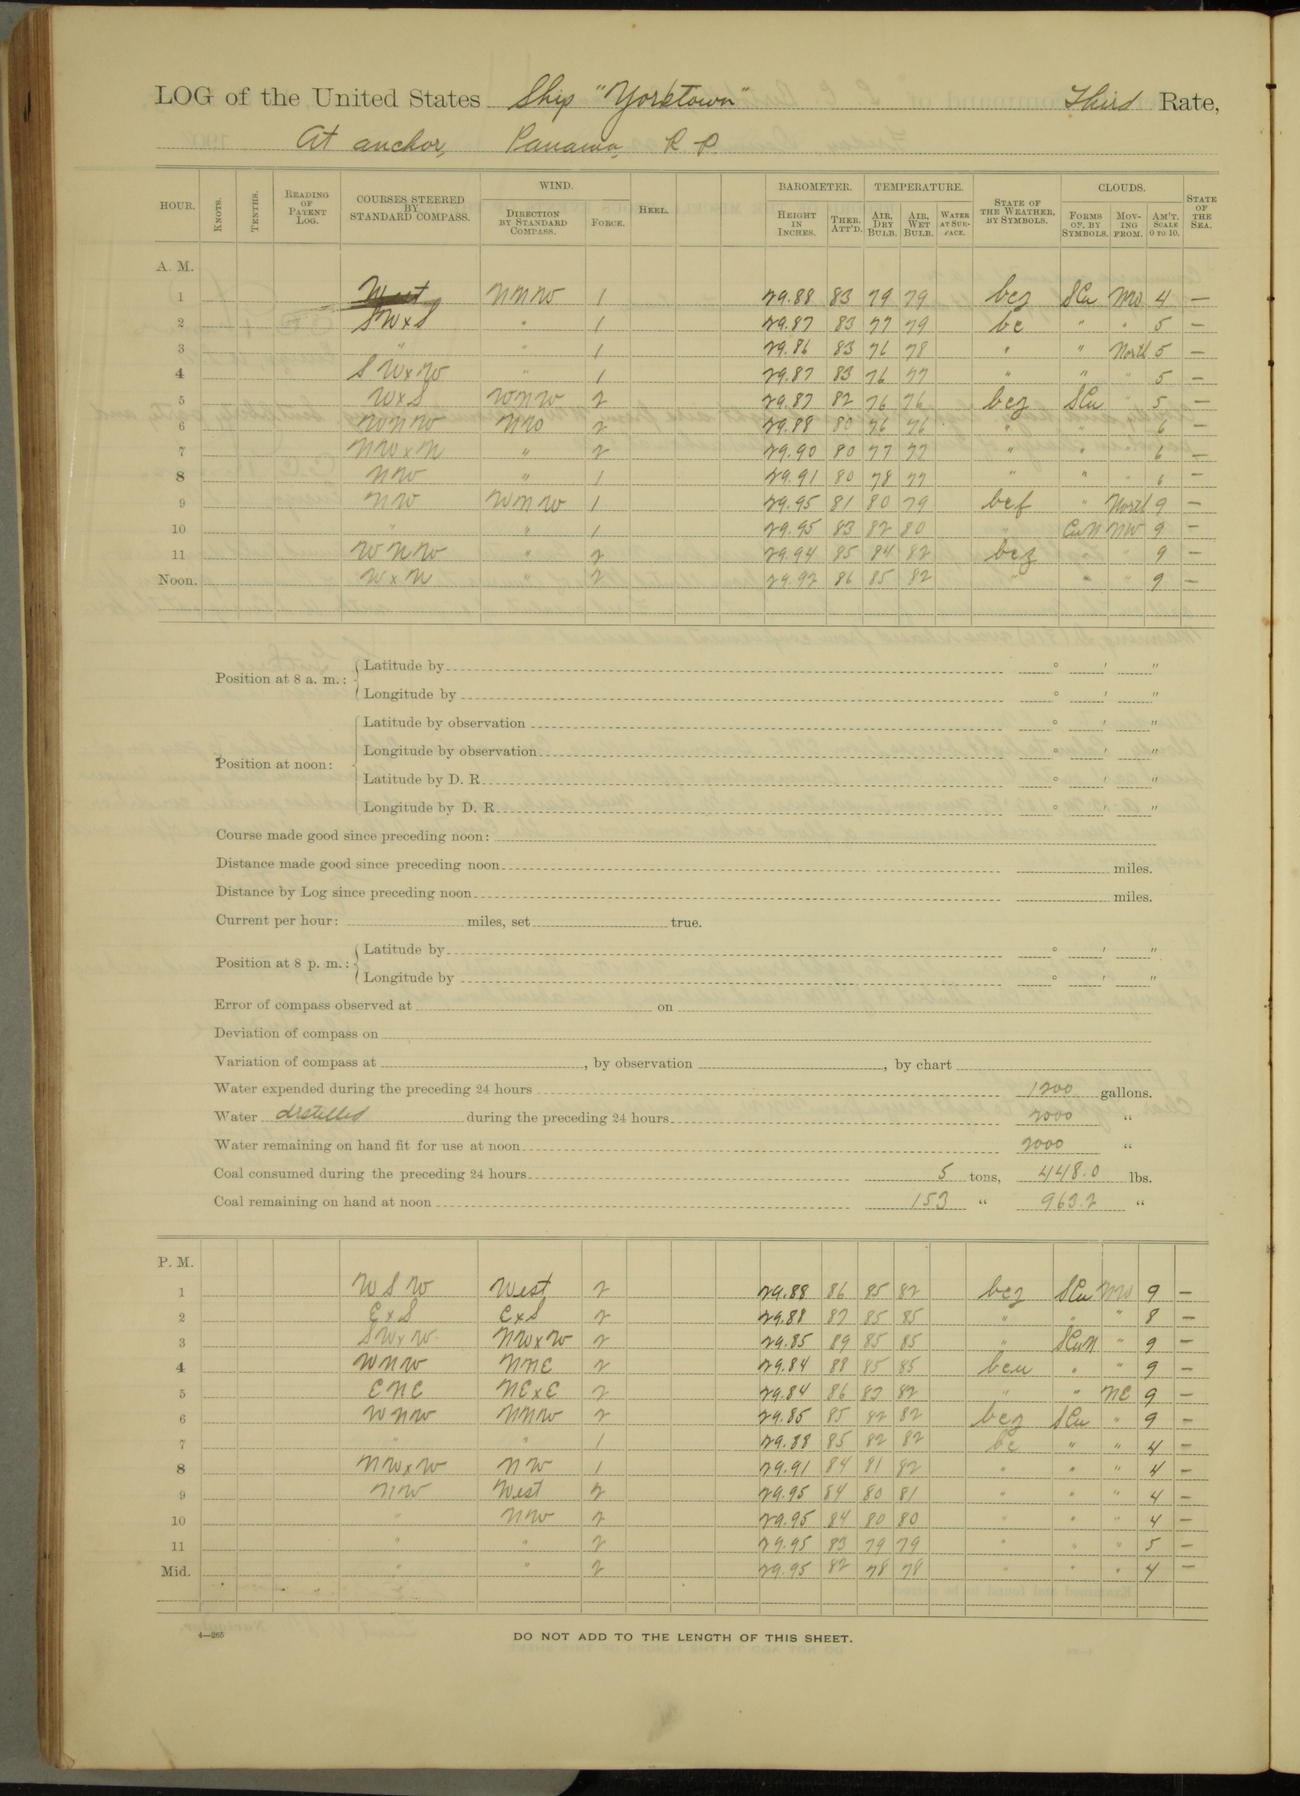 LOG of the United States Ship "Yorktown" Third Rate,
At anchor, Panama, R. P.
HOUR. KNOTS. TENTHS. READING OF PATENT LOG. COURSES STEERED BY STANDARD COMPASS. WIND. DIRECTION BY STANDARD COMPASS. FORCE. HEEL. BAROMETER. HEIGHT IN INCHES. THER. ATT'D. TEMPERATURE. AIR, DRY BULB. AIR, WET BULB. WATER AT SURFACE. STATE OF THE WEATHER, BY SYMBOLS. CLOUDS. FORMS OF, BY SYMBOLS. MOVING FROM. AM'T. SCALE 0 TO 10. STATE OF THE SEA.
A. M.
1 West NNW 1 29.88 83 79 79 bcz SCu NW 4 —
2 SWxS " 1 29.87 83 77 79 bc " " 5 —
3 " " 1 29.86 83 76 78 " " North 5 —
4 SWxW " 1 29.87 83 76 77 " " " 5 —
5 WxS WNW 2 29.87 82 76 76 bcz SCu " 5 —
6 WNW NW 2 29.88 80 76 76 " " " 6 —
7 NWxN " 2 29.90 80 77 77 " " " 6 —
8 NW " 1 29.91 80 78 77 " " " 6 —
9 NW WNW 1 29.95 81 80 79 bcf " North 9 —
10 " " 1 29.95 83 82 80 " CuN NW 9 —
11 WNW " 2 29.94 85 84 82 bcz " " 9 —
Noon. WxN " 2 29.92 86 85 82 " " " 9 —
Position at 8 a. m.: Latitude by ° ' "
Longitude by ° ' "
Position at noon: Latitude by observation ° ' "
Longitude by observation ° ' "
Latitude by D. R. ° ' "
Longitude by D. R. ° ' "
Course made good since preceding noon:
Distance made good since preceding noon miles.
Distance by Log since preceding noon miles.
Current per hour: miles, set true.
Position at 8 p. m.: Latitude by ° ' "
Longitude by ° ' "
Error of compass observed at on
Deviation of compass on
Variation of compass at , by observation , by chart
Water expended during the preceding 24 hours 1200 gallons.
Water distilled during the preceding 24 hours 2000 "
Water remaining on hand fit for use at noon 2000 "
Coal consumed during the preceding 24 hours 5 tons, 448.0 lbs.
Coal remaining on hand at noon 153 " 963.2 "
P. M.
1 WSW West 2 29.88 86 85 82 bcz SCu NW 9 —
2 ExS ExS 2 29.88 87 85 85 " " " 8 —
3 SWxW NWxW 2 29.85 89 85 85 " SCuN " 9 —
4 WNW NNE 2 29.84 88 85 85 bcu " " 9 —
5 ENE NExE 2 29.84 86 83 82 " " NE 9 —
6 WNW NNW 2 29.85 85 82 82 bcz SCu " 9 —
7 " " 1 29.88 85 82 82 bc " " 4 —
8 NWxW NW 1 29.91 84 81 82 " " " 4 —
9 NW West 2 29.95 84 80 81 " " " 4 —
10 " NW 2 29.95 84 80 80 " " " 4 —
11 " " 2 29.95 83 79 79 " " " 5 —
Mid. " " 2 29.95 82 78 78 " " " 4 —
4—265
DO NOT ADD TO THE LENGTH OF THIS SHEET.